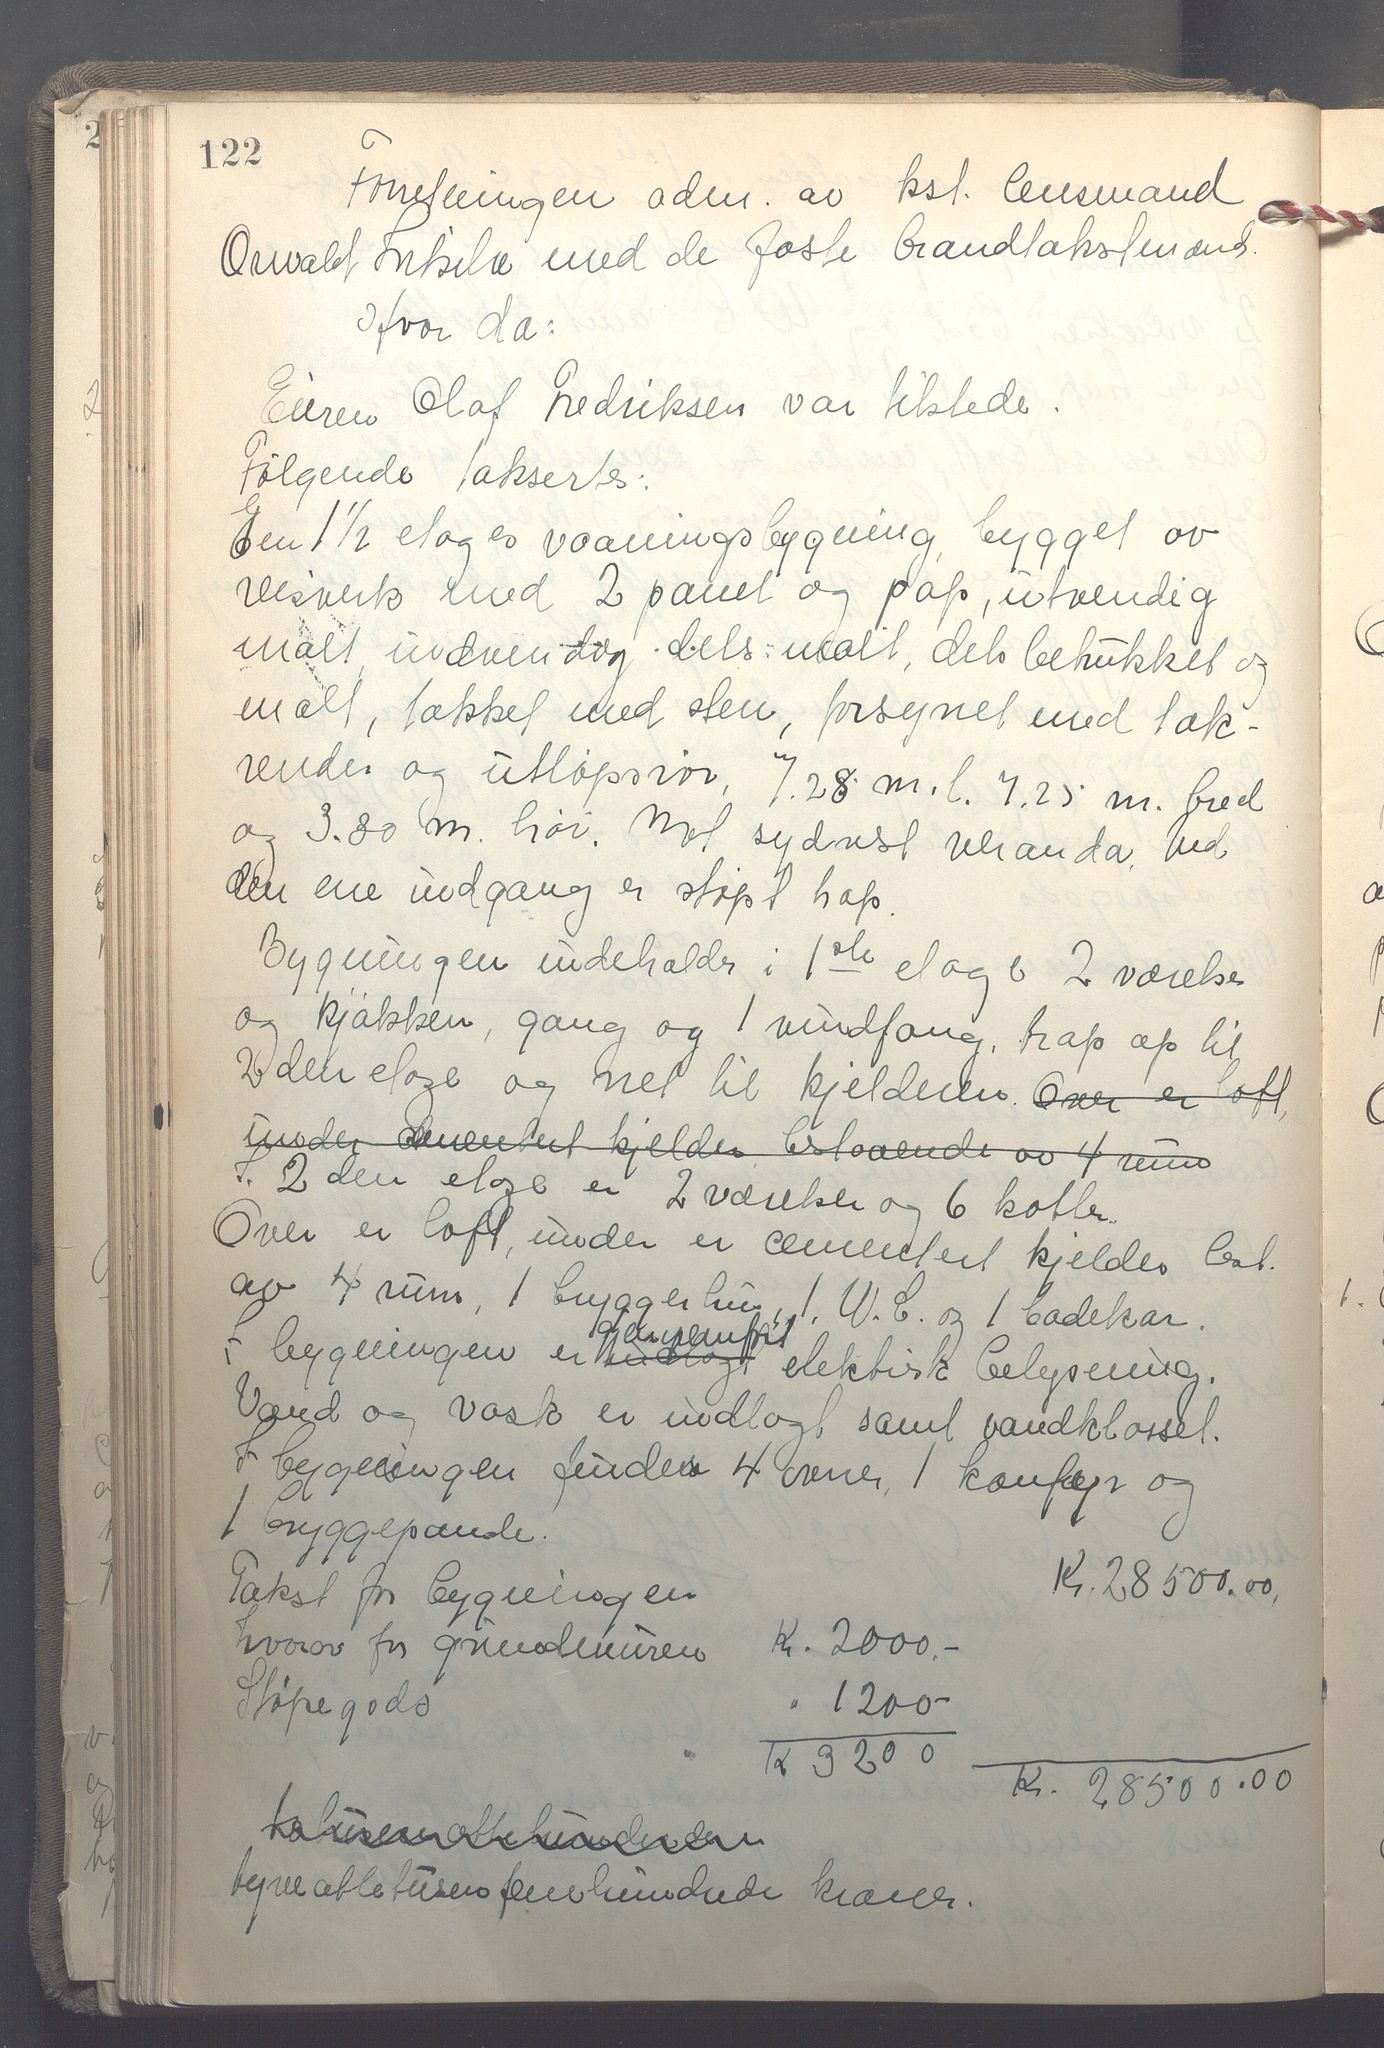 122
Forretningen adm. av kst. lensmand
Osvald Eskeba med de faste brandtakstmænd.
Hvor da:
Eieren Olaf Fredriksen var tilstede.
Følgende taksertes:
En 1 1/2 etages vaaningsbygning, bygget av
reisverk med 2 panel og pap, utvendig
malt, indvendig dels malt, dels betrukket og
malt, takket med sten, forsynet med tak-
render og utløpsrør, 7.28 m. l. 7.25 m. bred
og 3.80 m. høi. Mot sydvest veranda, ved
den ene indgang er støpt trap.
Bygningen indeholder i 1ste etage 2 værelser
og kjøkken, gang og 1 vindfang, trap op til
2den etage og ned til kjelderen. Over er loft,
under cementert kjelder bestaaende av 4 rum
I 2 den etage er 2 værelser og 6 kotter.
Over er loft, under er cementert kjelder best.
av 4 rum, 1 bryggerhus, 1. W.C. og 1 badekar.
I bygningen er indlagt gjennemført elektrisk belysning.
Vand og vask er indlagt samt vandklosset.
I bygningen findes 4 ovner, 1 komfyr og
1 bryggepande.
Takst for bygningen Kr. 28500.00,
hvorav for grundmuren Kr. 2000.-
Støpegods " 1200-
Kr 3200 Kr. 28500.00
tyveottetusenfemhundrede kroner.